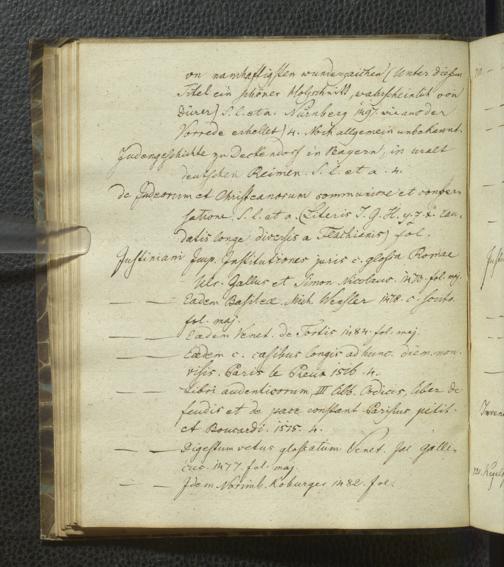 von namhaftigsten wunderzaichen (Unter diesem
Titel ein schöner Holzschnitt, wahrscheinlich von
Dürer) S. l. et a. Nürnberg 1497. wie aus der
Vorrede erhellet) 4. Noch allgemein unbekannt.
Judengeschichte zu Deckendorf in Bayern, in uralt
deutschen Reimen. S. l. et a. 4.
de Judeorum et Christianorum communione et conver
satione. S. l. et a. (Literis I. G. H. y. z.
datis longe diversis a) fol.
Justiniani Imp. Institutiones juris c. glossa Romae
Ulr. Gallus et Simon Nicolaus. 1473. fol. maj.
— — Eadem Basileae. Mich Wensler 1478. c.
fol. maj.
— — Eadem Venet. de Tortis 1484. fol. maj.
— — Eaedem c. casibus longis ad hunc. diem non
visis. Paris le Preux 1516. 4.
— — Libri autenticorum, III libb. Codicis, liber de
feudis et de pace constant Parisius petit.
et Boucardi. 1515. 4.
— — Digestum vetus glossatum Venet. Jac Galli
cus. 1477. fol. maj.
— — Idem Norimb. Koburger 1482. fol.